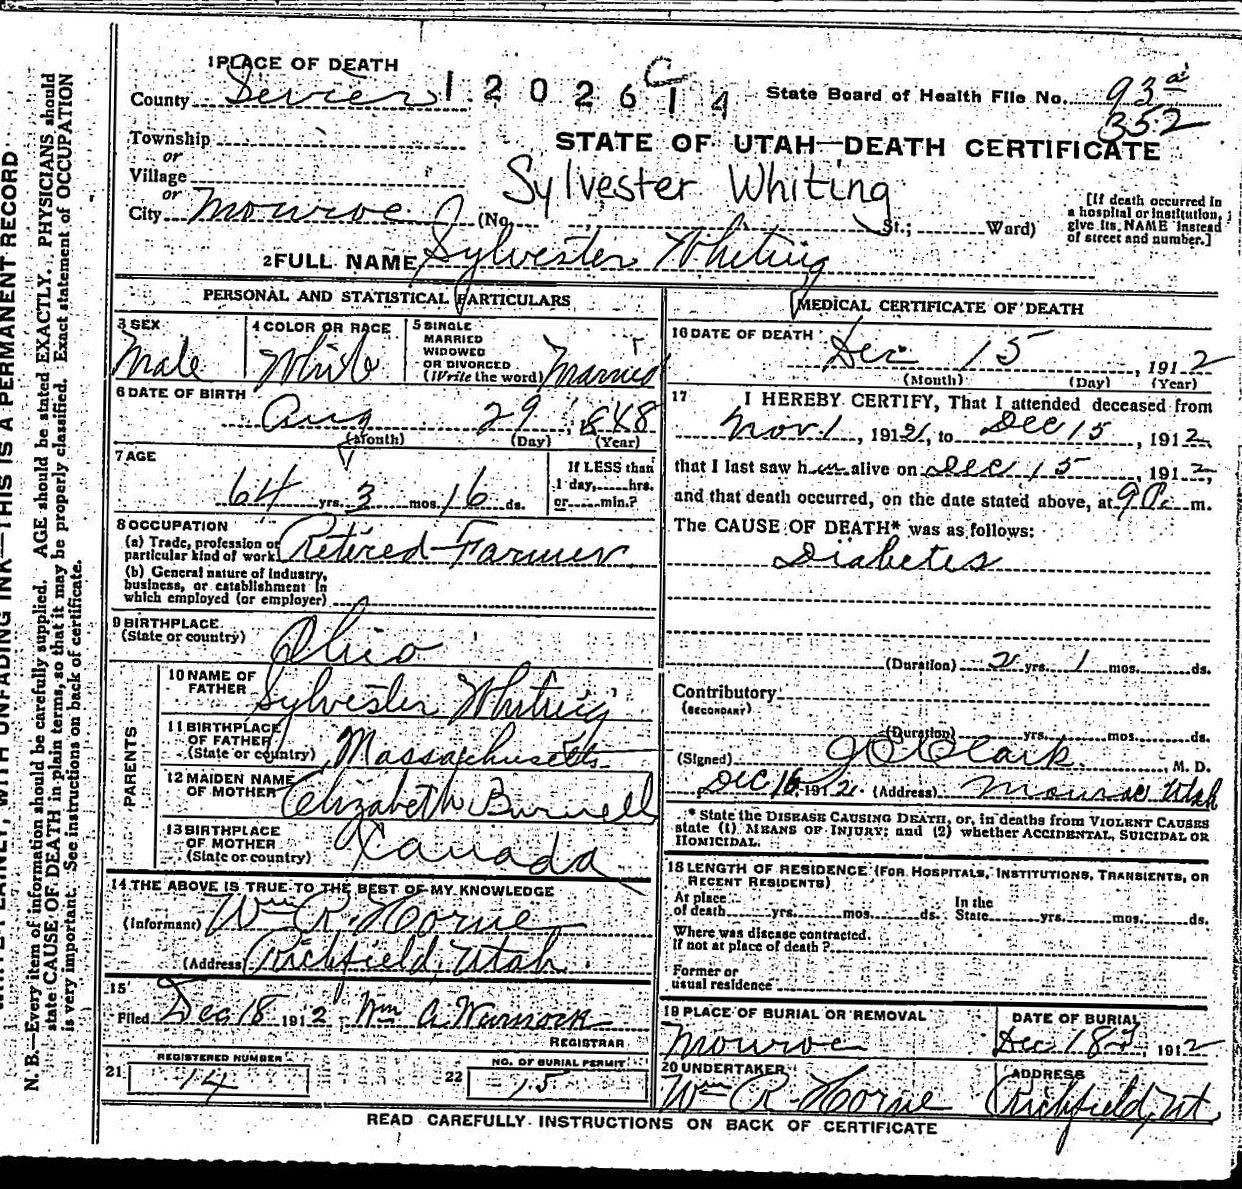 1 PLACE OF DEATH
County Sevier 1202614 C State Board of Health File No. 93 a
352
Township
or
STATE OF UTAH—DEATH CERTIFICATE
Village
or
Sylvester Whiting
City Monroe (No. St.; Ward)
[If death occurred in
a hospital or institution,
give its NAME instead
of street and number.]
2 FULL NAME Sylvester Whiting
PERSONAL AND STATISTICAL PARTICULARS
3 SEX
Male
4 COLOR OR RACE
White
5 SINGLE
MARRIED
WIDOWED
OR DIVORCED
(Write the word) Married
6 DATE OF BIRTH
Aug 29, 1848
(Month) (Day) (Year)
7 AGE
64 yrs. 3 mos. 16 ds.
If LESS than
1 day, hrs.
or min.?
8 OCCUPATION
(a) Trade, profession or
particular kind of work Retired Farmer
(b) General nature of industry,
business, or establishment in
which employed (or employer)
9 BIRTHPLACE
(State or country) Ohio
PARENTS
10 NAME OF
FATHER Sylvester Whiting
11 BIRTHPLACE
OF FATHER
(State or country) Massachusetts
12 MAIDEN NAME
OF MOTHER Elizabeth Burnell
13 BIRTHPLACE
OF MOTHER
(State or country) Canada
14 THE ABOVE IS TRUE TO THE BEST OF MY KNOWLEDGE
(Informant) Wm R. Horne
(Address) Richfield, Utah
15
Filed Dec 18 1912 Wm A. Warnock
REGISTRAR
REGISTERED NUMBER
21 14
NO. OF BURIAL PERMIT
22 15
MEDICAL CERTIFICATE OF DEATH
16 DATE OF DEATH
Dec 15, 1912
(Month) (Day) (Year)
17 I HEREBY CERTIFY, That I attended deceased from
Nov. 1, 191 , to Dec 15, 1912,
that I last saw him alive on Dec 15, 1912,
and that death occurred, on the date stated above, at 9 m.
The CAUSE OF DEATH* was as follows:
Diabetes
(Duration) 2 yrs. 1 mos. ds.
Contributory
(SECONDARY)
(Duration) yrs. mos. ds.
(Signed) J O Clark M. D.
Dec 16 1912. (Address) Monroe Utah
* State the DISEASE CAUSING DEATH, or, in deaths from VIOLENT CAUSES
state (1) MEANS OF INJURY; and (2) whether ACCIDENTAL, SUICIDAL OR
HOMICIDAL.
18 LENGTH OF RESIDENCE (FOR HOSPITALS, INSTITUTIONS, TRANSIENTS, OR
RECENT RESIDENTS)
At place
of death yrs. mos. ds.
In the
State yrs. mos. ds.
Where was disease contracted,
If not at place of death?
Former or
usual residence
19 PLACE OF BURIAL OR REMOVAL
Monroe
DATE OF BURIAL
Dec 18, 1912
20 UNDERTAKER
Wm R. Horne
ADDRESS
Richfield, Ut
READ CAREFULLY INSTRUCTIONS ON BACK OF CERTIFICATE
WITH UNFADING INK—THIS IS A PERMANENT RECORD
N. B.—Every item of information should be carefully supplied. AGE should be stated EXACTLY. PHYSICIANS should
state CAUSE OF DEATH in plain terms, so that it may be properly classified. Exact statement of OCCUPATION
is very important. See instructions on back of certificate.